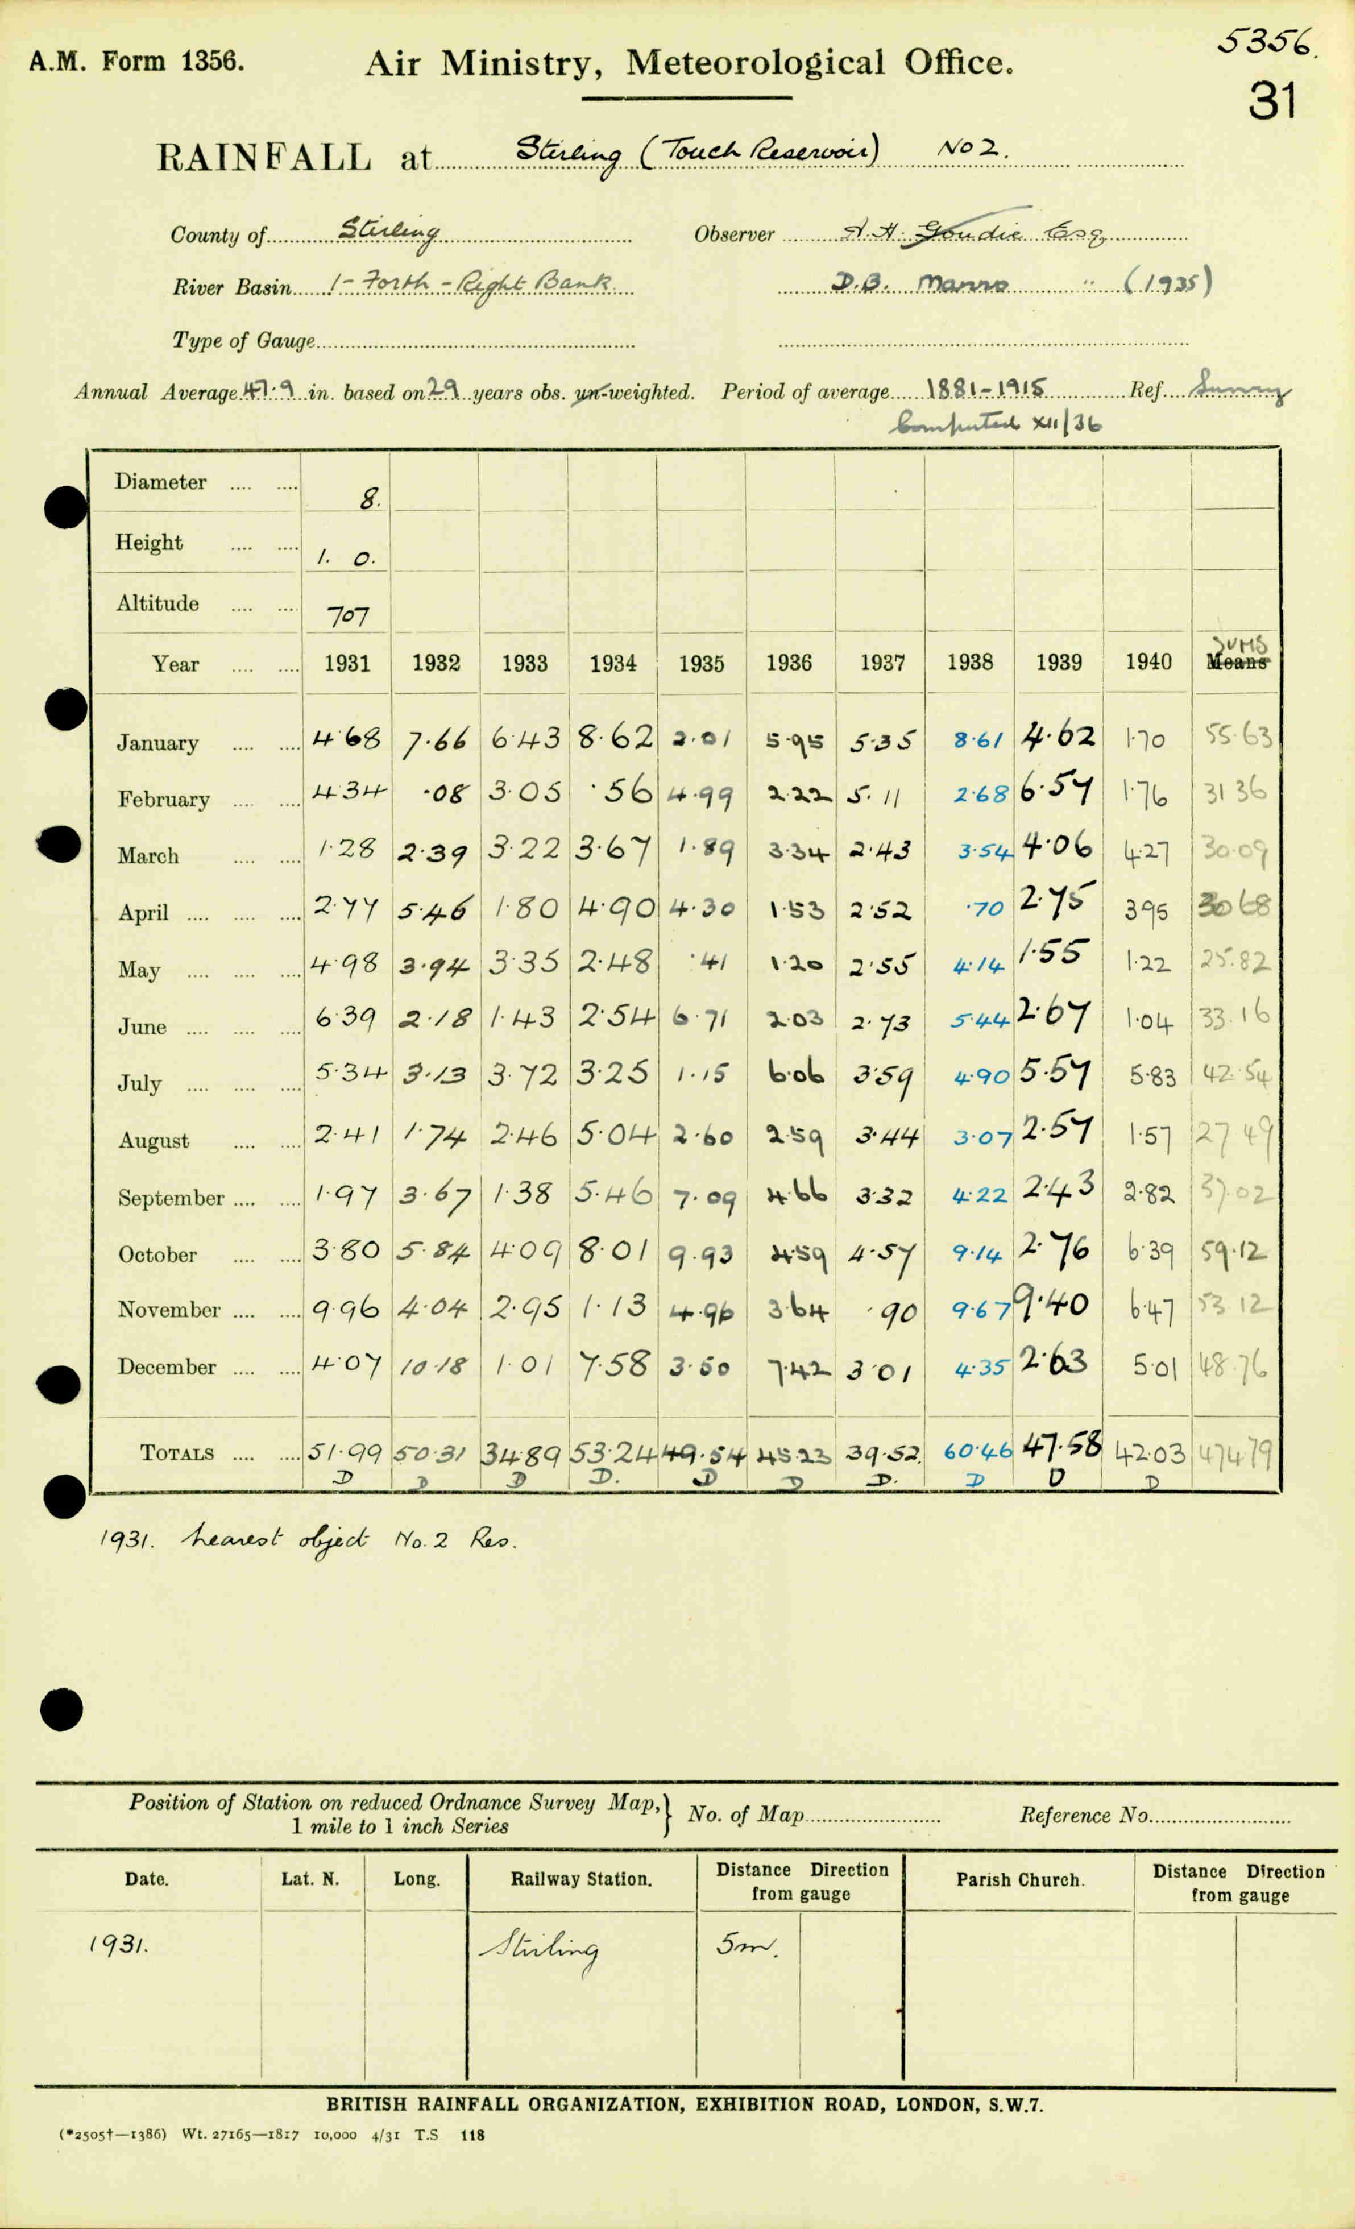 5356.
A.M. Form 1356. Air Ministry, Meteorological Office.
31
RAINFALL at Stirling (Touch Reservoir) No 2.
County of Stirling Observer A. H. Goudie Esq
River Basin 1 - Forth - Right Bank D.B. Manro " (1935)
Type of Gauge
Annual Average 47.9 in. based on 29 years obs. un-weighted. Period of average 1881-1915 Ref.
Computed XII/36
Diameter 8.
Height 1. 0.
Altitude 707
SUMS
Year 1931 1932 1933 1934 1935 1936 1937 1938 1939 1940 Means
January 4.68 7.66 6.43 8.62 2.01 5.95 5.35 8.61 4.62 1.70 55.63
February 4.34 .08 3.05 .56 4.99 2.22 5.11 2.68 6.57 1.76 31 36
March 1.28 2.39 3.22 3.67 1.89 3.34 2.43 3.54 4.06 4.27 30.09
April 2.77 5.46 1.80 4.90 4.30 1.53 2.52 .70 2.75 3.95 30 68
May 4.98 3.94 3.35 2.48 .41 1.20 2.55 4.14 1.55 1.22 25.82
June 6.39 2.18 1.43 2.54 6.71 2.03 2.73 5.44 2.67 1.04 33.16
July 5.34 3.13 3.72 3.25 1.15 6.06 3.59 4.90 5.57 5.83 42.54
August 2.41 1.74 2.46 5.04 2.60 2.59 3.44 3.07 2.57 1.57 27 49
September 1.97 3.67 1.38 5.46 7.09 4.66 3.32 4.22 2.43 2.82 37.02
October 3.80 5.84 4.09 8.01 9.93 4.59 4.57 9.14 2.76 6.39 59.12
November 9.96 4.04 2.95 1.13 4.96 3.64 .90 9.67 9.40 6.47 53 12
December 4.07 10.18 1.01 7.58 3.50 7.42 3.01 4.35 2.63 5.01 48.76
TOTALS 51.99 50.31 34.89 53.24 49.54 45.23 39.52. 60.46 47.58 42.03 474.79
D D D D. D D D. D D D
1931. nearest object No. 2 Res.
Position of Station on reduced Ordnance Survey Map, } No. of Map Reference No.
1 mile to 1 inch Series
Date. Lat. N. Long. Railway Station. Distance Direction Parish Church. Distance Direction
from gauge from gauge
1931. Stirling 5m.
BRITISH RAINFALL ORGANIZATION, EXHIBITION ROAD, LONDON, S.W.7.
(*2505†—1386) Wt. 27165—1817 10,000 4/31 T.S 118